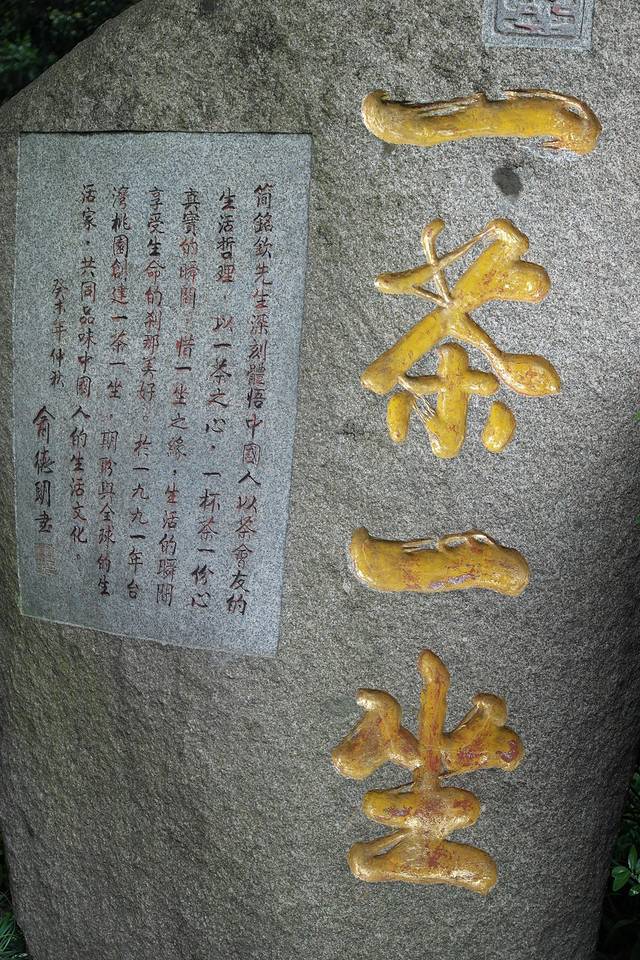 一茶一坐
简銘欽先生深刻體悟中國人以茶會友的
生活哲理，以一茶之心，一杯茶一份心
真實的瞬間，惜一坐之緣，生活的瞬間
享受生命的刹那美好。於一九九一年台
灣桃園創建一茶一坐，期盼與全球的生
活家，共同品味中國人的生活文化。
癸未年仲秋 俞德明書